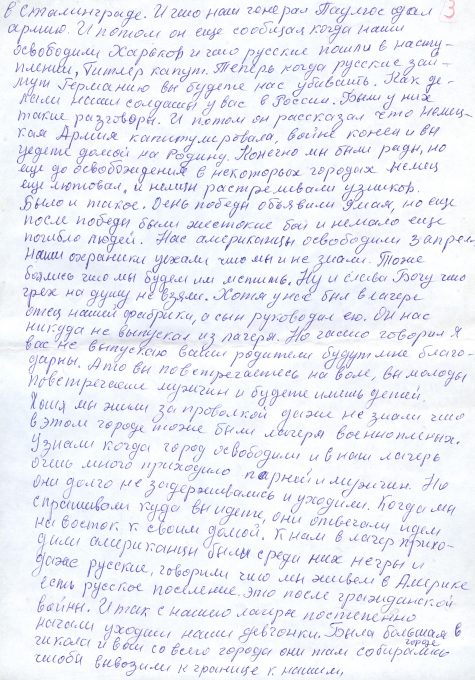 3
в Сталинграде. И что наш генерал Паулюс сдал
армию. И потом он еще сообщал когда наши
освободили Харьков и что русские пошли в насту-
пление, Гитлер капут. Теперь когда русские зай-
мут Германию вы будете нас убивать. Как де-
лали наши солдаты у вас в России. Были у них
такие разговоры. И потом он рассказал что немец-
кая Армия капитулировала, войне конец и вы
уедете домой на Родину. Конечно мы были рады, но
еще до освобождения в некоторых городах немец
еще лютовал, и немцы расстреливали узников.
Было и такое. День победы объявили 9 мая, но еще
после победы были жестокие бои и немало еще
погибло людей. Нас американцы освободили 3 апреля
наши охранники уехали что мы и не знали. Тоже
боялись что мы будем им мстить. Ну и слава Богу что
грех на душу не взяли. Хотя у нас был в лагере
отец нашей фабрики, а сын руководил ею. Он нас
никуда не выпускал из лагеря. Но часто говорил я
вас не выпускаю ваши родители будут мне благо-
дарны. А то вы повстречаетесь на воле, вы молоды
повстречаете мужчин и будете иметь детей.
Хотя мы жили за проволкой даже не знали что
в этом городе тоже были лагеря военнопленных.
Узнали когда город освободили и в наш лагерь
очень много приходило парней и мужчин. Но
они долго не задерживались и уходили. Когда мы
спрашивали куда вы идете, они отвечали идем
на восток к своим домой. К нам в лагерь прихо-
дили американцы были среди них негры и
даже русские, говорили что мы живем в Америке
есть русское поселение. Это после гражданской
войны. И так с нашего лагеря постепенно
начали уходить наши девчонки. Была большая в городе
школа и вот со всего города они там собирались
чтобы вывозили к границе к нашим,